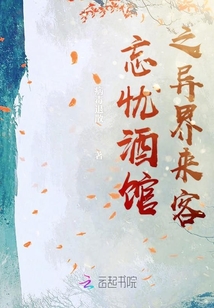 之异界来客
忘忧酒馆
著
云起书院